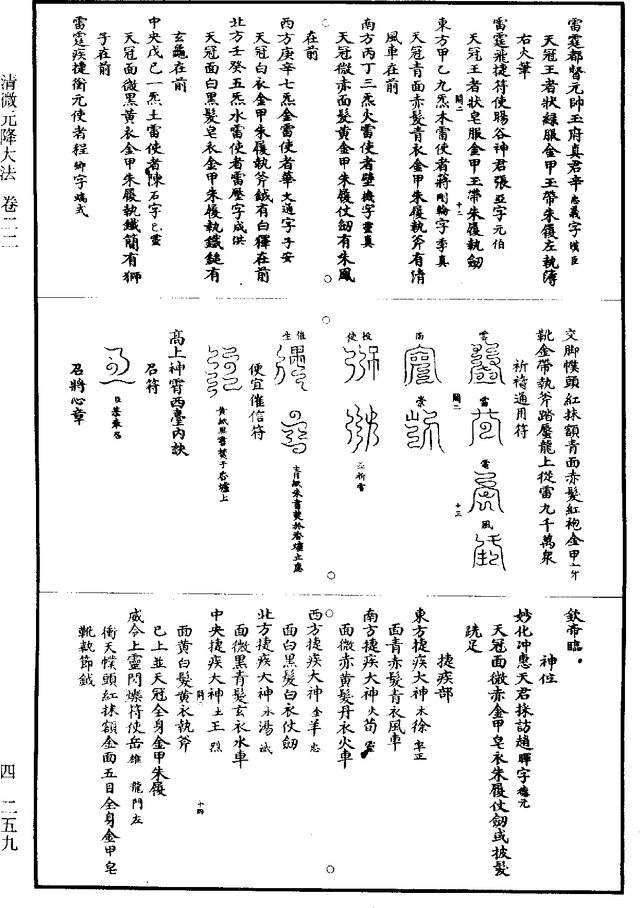 清微元降大法 卷二二
四 二五九
雷霆都督元帥玉府真君辛忠義字漢臣
天冠王者狀綠服金甲玉帶朱履左執簿
右火筆
雷霆飛捷符使暘谷神君張亞字元伯
天冠王者狀皂服金甲玉帶朱履執劒
東方甲乙九炁木雷使者蔣剛輪字季真
天冠青面赤髮青衣金甲朱履執斧有清
風車在前
南方丙丁三炁火雷使者璧機字靈真
天冠微赤面髮黃金甲朱履仗劒有朱風
在前
西方庚辛七炁金雷使者華文通字子安
天冠白衣金甲朱履執斧鉞有白獐在前
北方壬癸五炁水雷使者雷壓字成洪
天冠面白黑髮皂衣金甲朱履執鐵鎚有
玄龜在前
中央戊己一炁土雷使者陳石字
天冠面微黑黃衣金甲朱履執鐵簡有獅
子在前
雷霆疾捷衝元使者程 字
交脚幞頭紅抹額青面赤髮紅袍金甲
靴金帶執斧踏蜃龍上從雷九千萬衆
祈禱通用符
雲 雷 電 風
雨 祟
投使
祈雷
催生
青紙朱書焚於香爐上應
便宜催信符
黃紙黑書焚于香爐上
高上神霄西臺内訣
召符
臣 奉召
召將心章
欽帝臨
神位
妙化冲惠天君採訪趙暉字 元
天冠面微赤金甲皂衣朱履仗劒或披髮
跣足
捷疾部
東方捷疾大神木徐 正
面青赤髮青衣風車
南方捷疾大神火荀
面微赤黃髮丹衣火車
西方捷疾大神金羊忠
面白黑髮白衣仗劒
北方捷疾大神水湯
面微黑青髮玄衣水車
中央捷疾大神土王烈
面黃白髮黃衣執斧
已上並天冠全身金甲朱履
威令上靈閃爍符使岳雄 龍門左
衝天幞頭紅抹額金面五目全身金甲皂
靴執節鉞